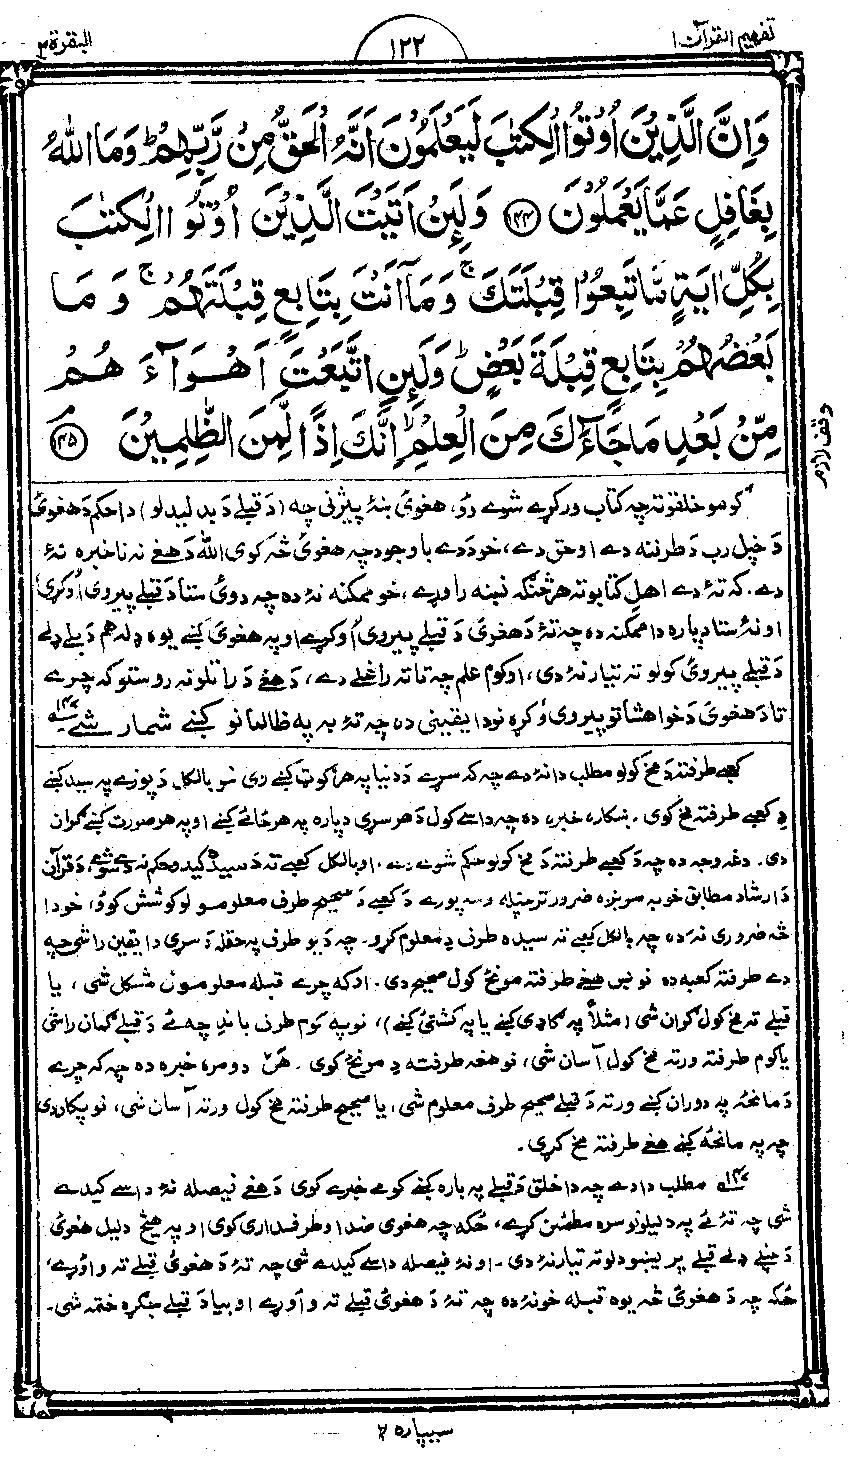 تفهيم القرآن ١
١٢٢
البقرة ٢
وَاِنَّ الَّذِيْنَ اُوْتُوا الْكِتٰبَ لَيَعْلَمُوْنَ اَنَّهُ الْحَقُّ مِنْ رَّبِّهِمْ ؕ وَمَا اللّٰهُ
بِغَافِلٍ عَمَّا يَعْمَلُوْنَ ﴿١٤٤﴾ وَلَىِٕنْ اَتَيْتَ الَّذِيْنَ اُوْتُوا الْكِتٰبَ
بِكُلِّ اٰيَةٍ مَّا تَبِعُوْا قِبْلَتَكَ ۚ وَمَاۤ اَنْتَ بِتَابِعٍ قِبْلَتَهُمْ ۚ وَ مَا
بَعْضُهُمْ بِتَابِعٍ قِبْلَةَ بَعْضٍ ؕ وَلَىِٕنِ اتَّبَعْتَ اَهْوَآءَ هُمْ
مِّنْۢ بَعْدِ مَا جَآءَكَ مِنَ الْعِلْمِ ۙ اِنَّكَ اِذًا لَّمِنَ الظّٰلِمِيْنَ ﴿١٤٥﴾
وقف لازم
كومو خلقو ته چه كتاب وركړے شوے دُو، هغوئ ښهٔ پيژنى چه (دَ قبلے دَ بدليدلو) دا حكم دَ هغوئ
دَ خپل رب دَ طرفنه دے او حق دے، خو ددے باوجود چه هغوئ څه كوى الله دَ هغے نه ناخبره نهٔ
دے. كه تهٔ دے اهل كتابو ته هر څنګه نښنه راوړے، خو ممكنه نهٔ ده چه دوئ ستا دَ قبلے پيروى اُوكړى
او نهٔ ستا دپاره دا ممكنه ده چه تهٔ دَ هغوئ دَ قبلے پيروى اُوكړے او په هغوئ كښے يوه ډله هم دَ بلے ډلے
دَ قبلے پيروئ كولو ته تيار نهٔ دى، اوكوم علم چه تا ته راغلے دے، دَ هغے دَ راتلو نه روستو كه چرے
تا دَ هغوئ دَ خواهشاتو پيروى وُكړه نو دا يقينى ده چه تهٔ به په ظالمانو كښے شمار شے
كعبے طرفته دَ مخ كولو مطلب دا نهٔ دے چه كه سړے دَ دنيا په هر ګوټ كښے وى نو بالكل دَ پوزے په سيده كښے
دِ كعبے طرفته مخ كوى. ښكاره خبره ده چه داسے كول دَ هر سړى دپاره په هر ځائے كښے او په هر صورت كښے ګران
دى. دغه وجه ده چه دَ كعبے طرفته دَ مخ كولو حكم شوے او بالكل كعبے ته دَ سيده كيدو حكم نه دے شوے، دَ قرآن
دَ ارشاد مطابق خو به مونږه ضرور تر خپله وسه پورے دَ كعبے دَ صحيح طرف معلومولو كوشش كوؤ، خو دا
څه ضرورى نه ده چه بالكل كعبے ته سيده طرف دِ معلوم كړو. چه دَ يو طرف په حقله دَ سړى دا يقين راشى چه
دے طرفته كعبه ده نو بس هغے طرفته مونځ كول صحيح دى. او كه چرے قبله معلومول مشكل شى، يا
قبلے ته مخ كول ګران شى (مثلاً په ګاډى كښے يا په كشتئ كښے)، نو په كوم طرف باندِ چه ئے دَ قبلے ګمان راشى
يا كوم طرفته ورته مخ كول آسان شى، نو هغه طرفته دِ مونځ كوى. هَن دومره خبره ده چه كه چرے
دَ مانځه په دوران كښے ورته دَ قبلے صحيح طرف معلوم شى، يا صحيح طرفته مخ كول ورته آسان شى، نو پكار دى
چه په مانځه كښے هغے طرفته مخ كړى.
مطلب دا دے چه دا خلق دَ قبلے په باره كښے كومے خبرے كوى دَ هغے فيصله نهٔ داسے كيدے
شى چه تهٔ ئے په دليلونو سره مطمئن كړے، ځكه چه هغوى ضد او طرفدارى كوى او په هيڅ دليل هغوئ
دَ خپلے ډلے قبلے پريښودلو ته تيار نهٔ دى. او نهٔ فيصله داسے كيدے شى چه تهٔ دَ هغوئ قبلے ته واوړے،
ځكه چه دَ هغوئ څه يوه قبله خو نهٔ ده چه تهٔ دَ هغوئ قبلے ته واوړے او بيا دَ قبلے جګړه ختمه شى.
سيپاره ٢